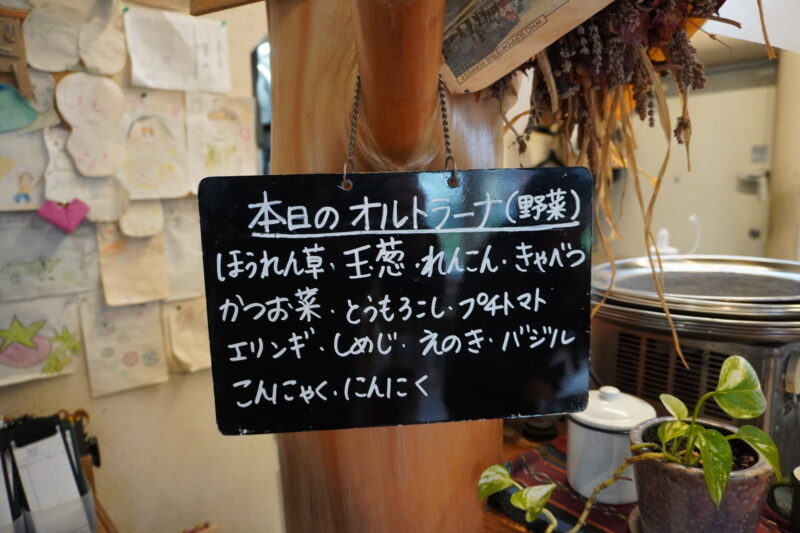 本日のオルトラーナ(野菜)
ほうれん草・玉葱・れんこん・きゃべつ
かつお菜・とうもろこし・プチトマト
エリンギ・しめじ・えのき・バジル
こんにゃく・にんにく